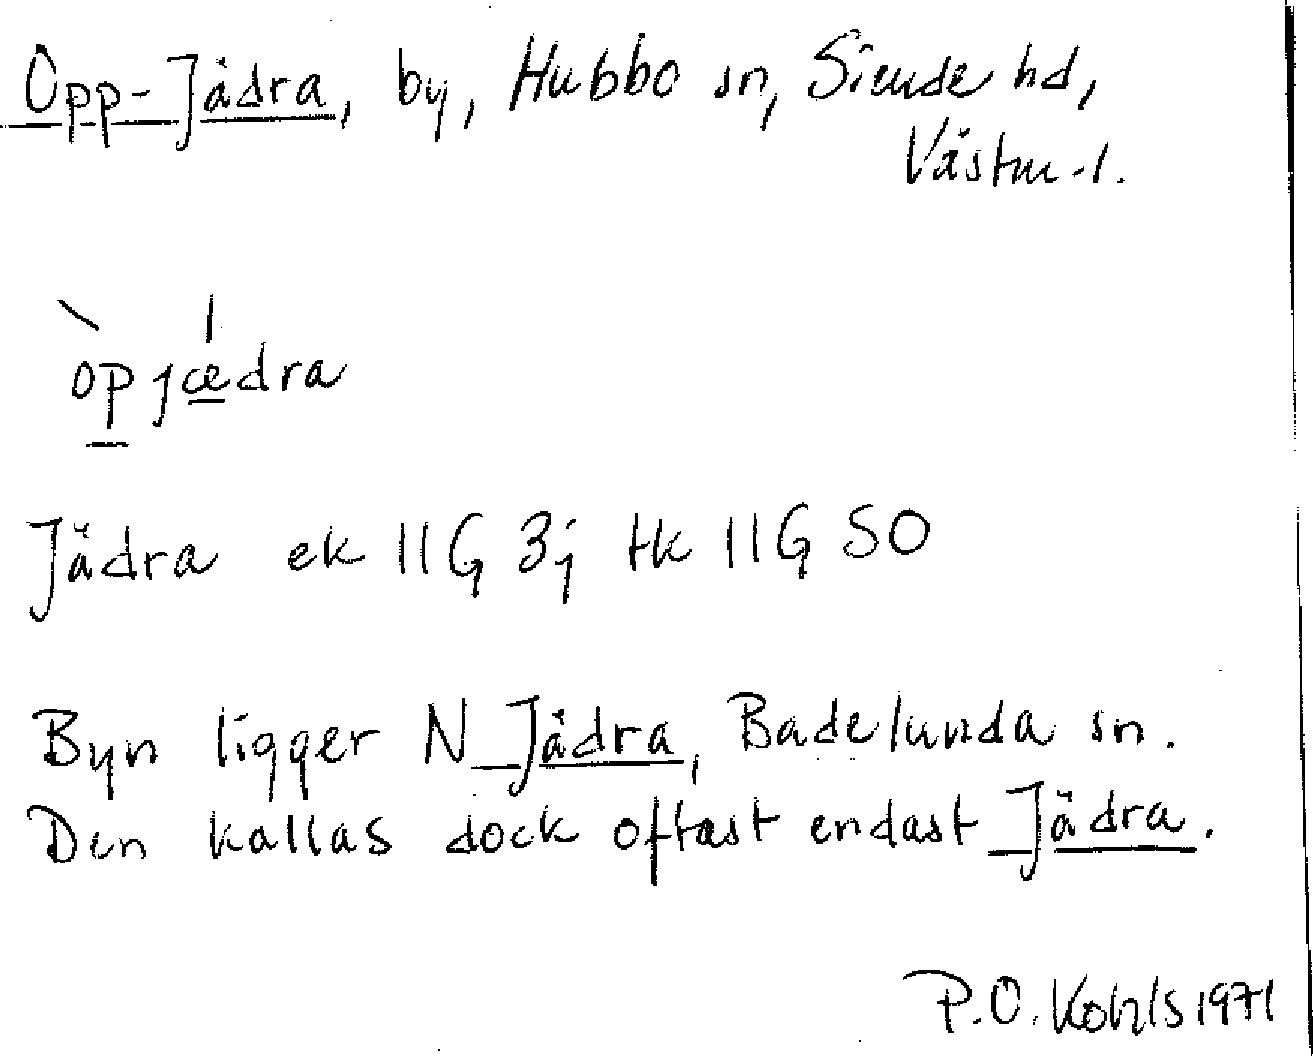 Opp-Jädra, by, Hubbo sn, Siende hd,
Västm.l.
òpjǽdra
Jädra ek 11G 3j tk 11G SO
Byn ligger N Jädra, Badelunda sn.
Den kallas dock oftast endast Jädra.
P.O. Kohls 1971